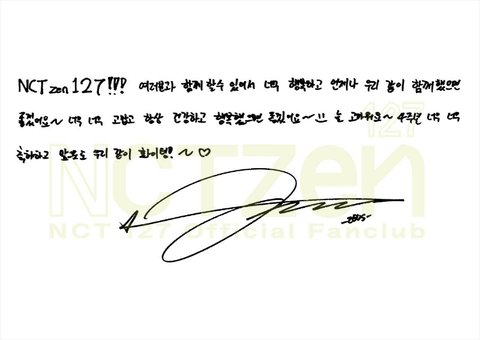 NCTzen 127!!! 여러분과 함께 할수 있어서 너무 행복하고 언제나 우리 같이 함께했으면
좋겠어요~ 너무 너무 고맙고 항상 건강하고 행복했으면 좋겠어요~!! 늘 고마워요~ 4주년 너무 너무
축하하고 앞으로도 우리 같이 화이팅!~♡
127
NCTzen
NCT 127 Official Fanclub